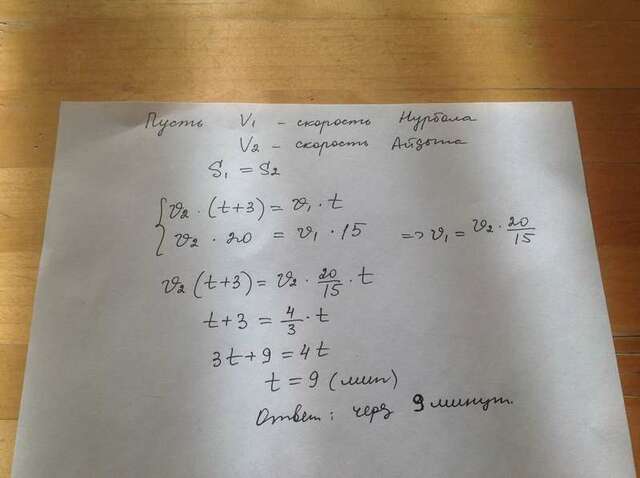 Пусть V₁ - скорость Нурбола
V₂ - скорость Айдына
S₁ = S₂
v₂ · (t+3) = v₁ · t
v₂ · 20 = v₁ · 15 => v₁ = v₂ · 20/15
v₂ (t+3) = v₂ · 20/15 · t
t+3 = 4/3 · t
3t+9 = 4t
t = 9 (мин)
Ответ: через 9 минут.